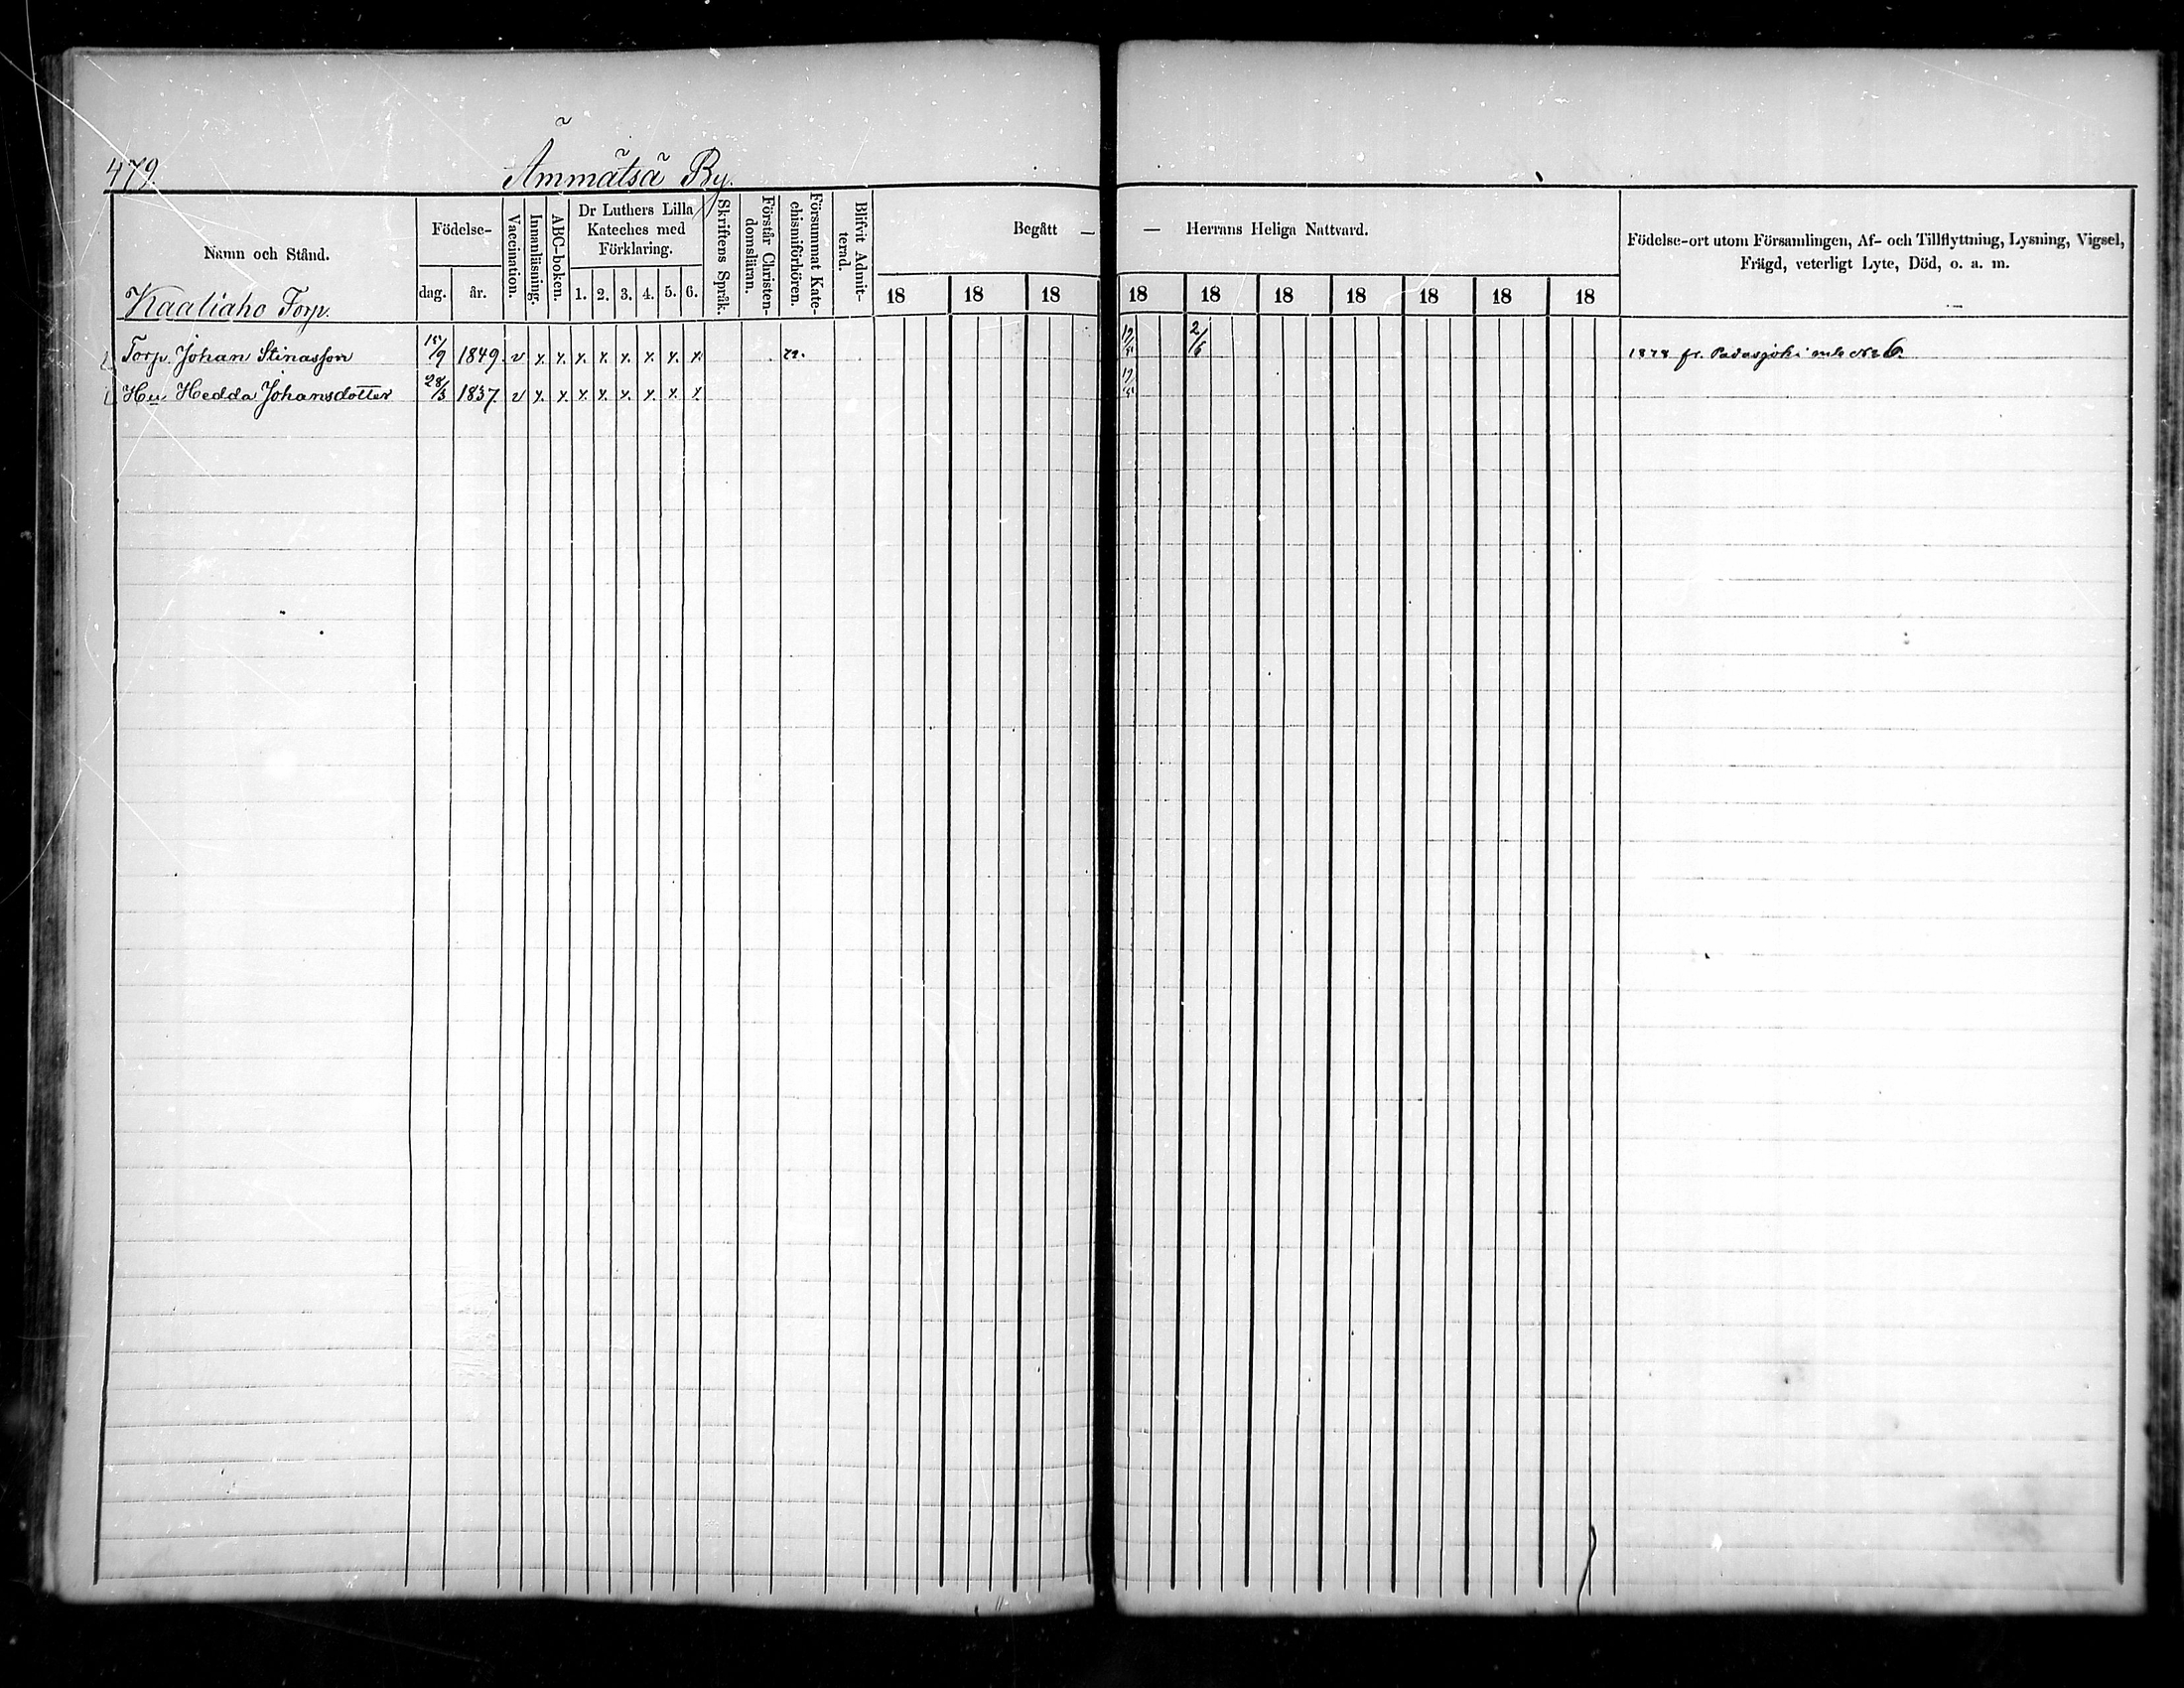 479.
Ämmätsä By.
Namn och Stånd.
Födelse-
dag.
år.
Vaccination.
Innanläsning.
ABC-boken.
Dr Luthers Lilla
Kateches med
Förklaring.
1. 2. 3. 4. 5. 6.
Skriftens Språk.
Förstår Christen-
domsläran.
Försummat Kate-
chismiförhören.
Blifvit Admit-
terad.
Begått — — Herrans Heliga Nattvard.
18 18 18 18 18 18 18 18 18 18
Födelse-ort utom Församlingen, Af- och Tillflyttning, Lysning, Vigsel,
Frägd, veterligt Lyte, Död, o. a. m.
Kaaliaho Torp.
Torp. Johan Stinasson 15/9 1849. v x. x. x. x. x. x. x. x 2/6 1878 fr. Padasjoki No 6
Hu Hedda Johansdotter 28/3 1837. v x. x. x x. x. x. x. x